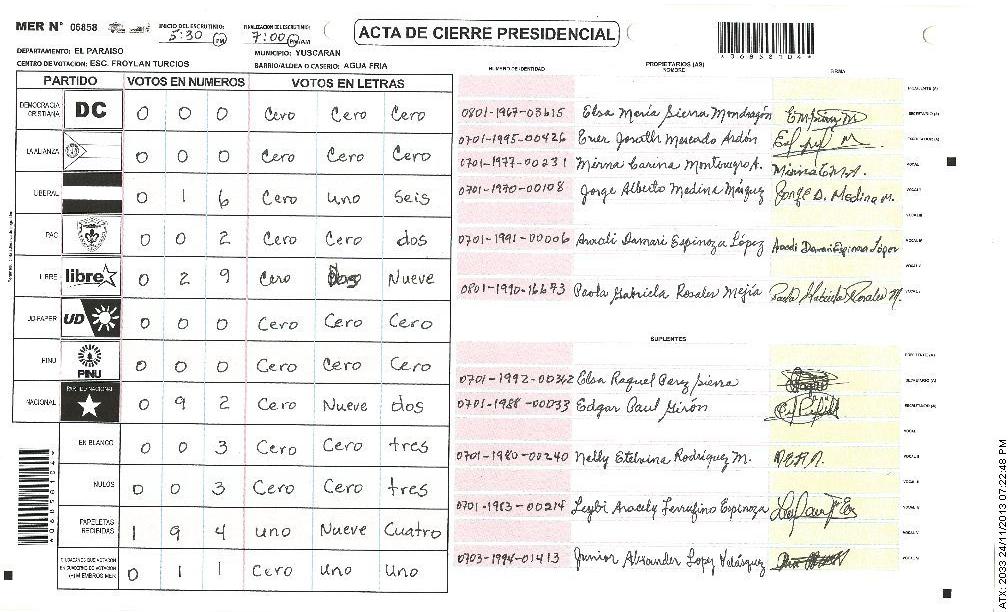 MER Nº 06858 INICIO DEL ESCRUTINIO: 5:30 PM FINALIZACION DE ESCRUTINIO: 7:00 PM ACTA DE CIERRE PRESIDENCIAL
DEPARTAMENTO: EL PARAISO MUNICIPIO: YUSCARAN
CENTRO DE VOTACION: ESC. FROYLAN TURCIOS BARRIO/ALDEA O CASERIO: AGUA FRIA
PARTIDO VOTOS EN NUMEROS VOTOS EN LETRAS
DEMOCRACIA CRISTIANA DC 0 0 0 Cero Cero Cero
LA ALIANZA 0 0 0 Cero Cero Cero
LIBERAL 0 1 6 Cero uno seis
PAC 0 0 2 Cero Cero dos
LIBRE libre 0 2 9 Cero Dos Nueve
UD-FAPER UD 0 0 0 Cero Cero Cero
PINU PINU 0 0 0 Cero Cero Cero
NACIONAL PARTIDO NACIONAL 0 9 2 Cero Nueve dos
EN BLANCO 0 0 3 Cero Cero tres
NULOS 0 0 3 Cero Cero tres
PAPELETAS RECIBIDAS 1 9 4 uno Nueve Cuatro
CIUDADANOS QUE VOTARON EN CUADERNO DE VOTACION (+) MIEMBROS MER 0 1 1 Cero Uno Uno
NUMERO DE IDENTIDAD PROPIETARIOS (AS) NOMBRE FIRMA
0801-1967-03615 Elsa María Sierra Mondragón
0701-1995-00426 Erer Jonath Mercado Ardón
0701-1977-00231 Mirna Carina Montenegro A.
0701-1970-00108 Jorge Alberto Medina Márquez Jorge A. Medina M.
0701-1991-00006 Araceli Damari Espinoza López Araceli Damari Espinoza López
0801-1990-16673 Paola Gabriela Rosales Mejía Paola Gabriela Rosales M.
SUPLENTES
0701-1992-00342 Elsa Raquel Perez Sierra
0701-1988-00033 Edgar Paul Girón
0701-1980-00240 Nelly Etelvina Rodríguez M.
0701-1983-00214 Leybi Aracely Ferrufino Espinoza
0703-1994-01413 Junior Alexander Lopez Velásquez
*06858104*
ATX: 2033 24/11/2013 07:22:48 PM